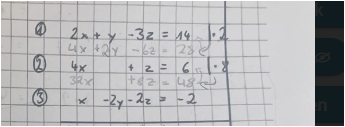 ① 2x + y - 3z = 14 | · 2
4x + 2y - 6z = 28
② 4x + z = 6 | · 8
32x + 8z = 48
③ x - 2y - 2z = -2